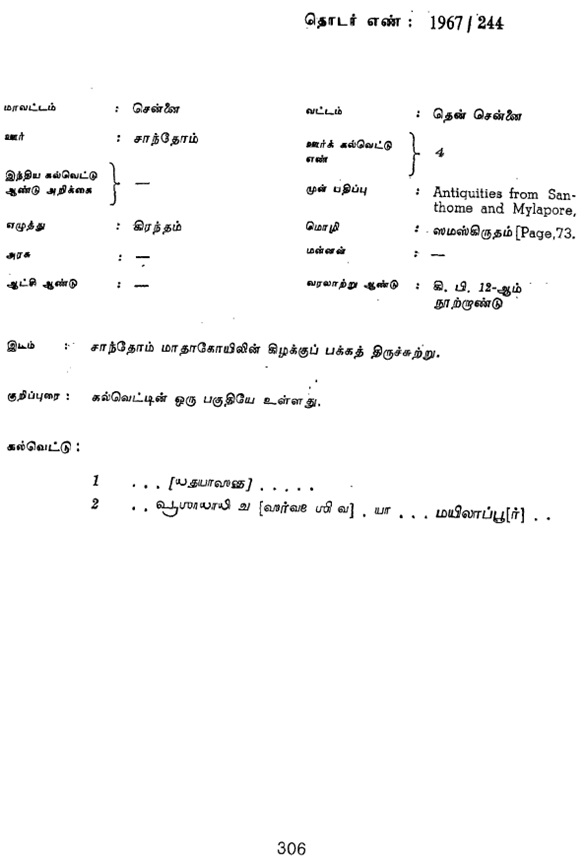 தொடர் எண் : 1967 / 244
மாவட்டம் : சென்னை வட்டம் : தென் சென்னை
ஊர் : சாந்தோம் ஊர்க் கல்வெட்டு எண் } 4
இந்திய கல்வெட்டு ஆண்டு அறிக்கை } — முன் பதிப்பு : Antiquities from San-
thome and Mylapore,
எழுத்து : கிரந்தம் மொழி : ஸமஸ்கிருதம் [Page,73.
அரசு : — மன்னன் : —
ஆட்சி ஆண்டு : — வரலாற்று ஆண்டு : கி. பி. 12-ஆம்
நூற்றாண்டு
இடம் : சாந்தோம் மாதாகோயிலின் கிழக்குப் பக்கத் திருச்சுற்று.
குறிப்புரை : கல்வெட்டின் ஒரு பகுதியே உள்ளது.
கல்வெட்டு :
1 . . . . . . . .
2 . . . யா . . . மயிலாப்பூ[ர்] . .
306